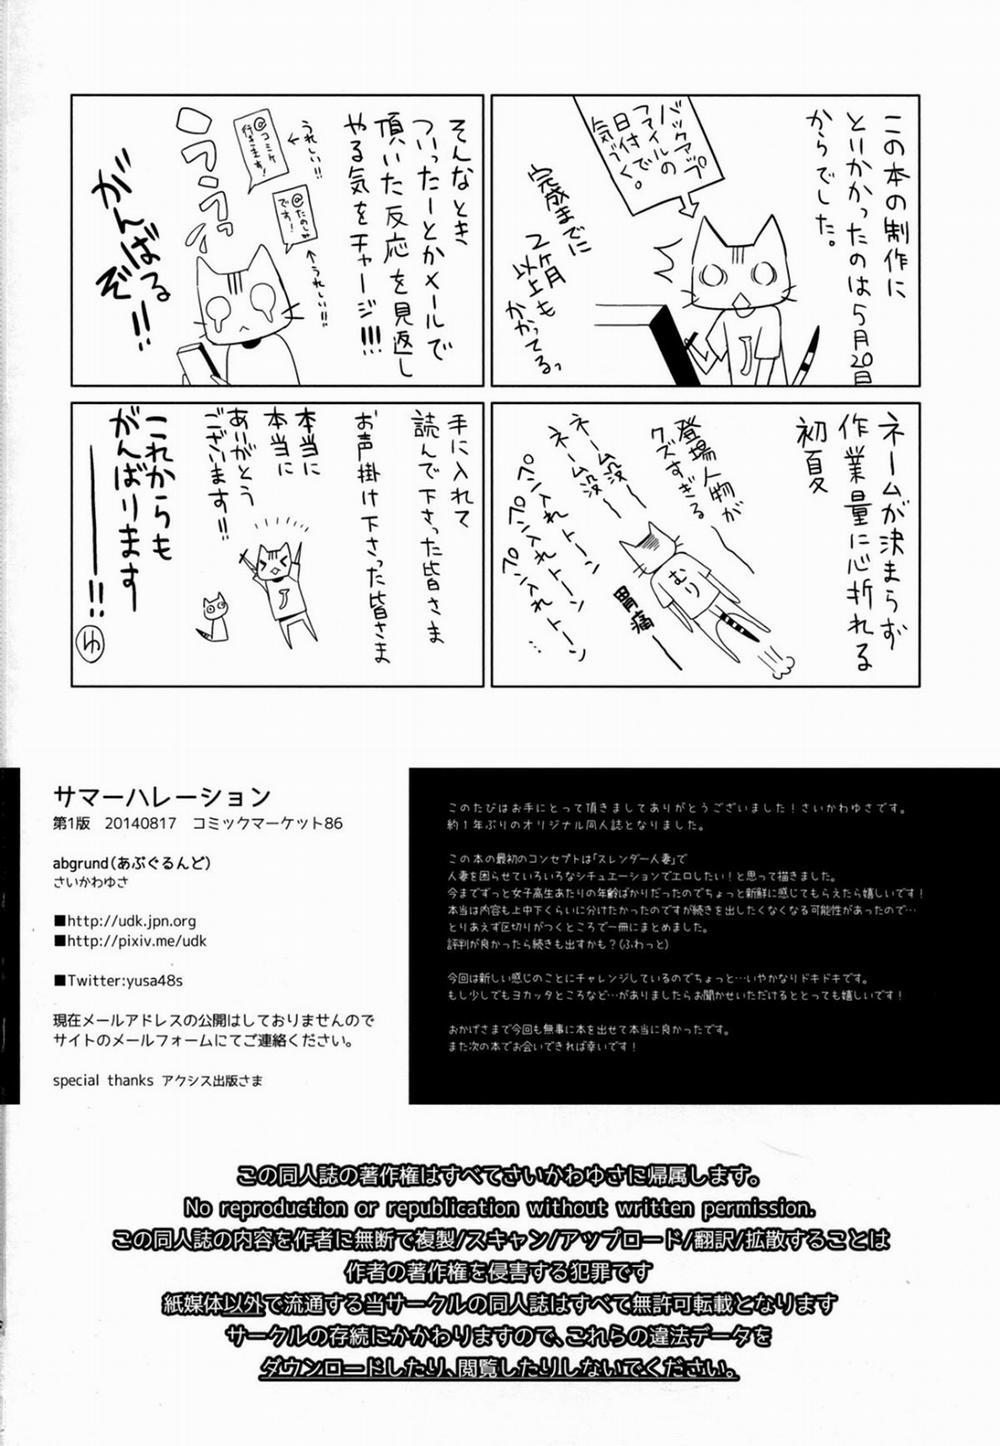 この本の制作に
とりかかったのは5月20日
からでした。
バックアップ
ファイルの
日付で
気づく。
完成までに
2ヶ月
以上も
かかってるっ
そんなとき
ついったーとかメールで
頂いた反応を見返し
やる気をチャージ!!!
うれしい!!
@コミケ
行きます!
@たのしみ
です!
うれしい!!
がんばる
ぞ!!
ネームが決まらず
作業量に心折れる
初夏
登場人物が
クズすぎる
ネーム没〜
ネーム没〜
ペン入れトーン
ペン入れトーン
ペン入れトーン…
むり
胃痛〜
手に入れて
読んで下さった皆さま
お声掛け下さった皆さま
本当に
本当に
ありがとう
ございます!!
これからも
がんばります
――!!
ゆ
サマーハレーション
第1版 20140817 コミックマーケット86
abgrund(あぶぐるんど)
さいかわゆさ
■http://udk.jpn.org
■http://pixiv.me/udk
■Twitter:yusa48s
現在メールアドレスの公開はしておりませんので
サイトのメールフォームにてご連絡ください。
special thanks アクシス出版さま
このたびはお手にとって頂きましてありがとうございました!さいかわゆさです。
約1年ぶりのオリジナル同人誌となりました。
この本の最初のコンセプトは「スレンダー人妻」で
人妻を困らせていろいろなシチュエーションでエロしたい!と思って描きました。
今までずっと女子高生あたりの年齢ばかりだったのでちょっと新鮮に感じてもらえたら嬉しいです!
本当は内容も上中下くらいに分けたかったのですが続きを出したくなくなる可能性があったので…
とりあえず区切りがつくところで一冊にまとめました。
評判が良かったら続きも出すかも?(ふわっと)
今回は新しい感じのことにチャレンジしているのでちょっと…いやかなりドキドキです。
もし少しでもヨカッタところなど…がありましたらお聞かせいただけるととっても嬉しいです!
おかげさまで今回も無事に本を出せて本当に良かったです。
また次の本でお会いできれば幸いです!
この同人誌の著作権はすべてさいかわゆさに帰属します。
No reproduction or republication without written permission.
この同人誌の内容を作者に無断で複製/スキャン/アップロード/翻訳/拡散することは
作者の著作権を侵害する犯罪です
紙媒体以外で流通する当サークルの同人誌はすべて無許可転載となります
サークルの存続にかかわりますので、これらの違法データを
ダウンロードしたり、閲覧したりしないでください。